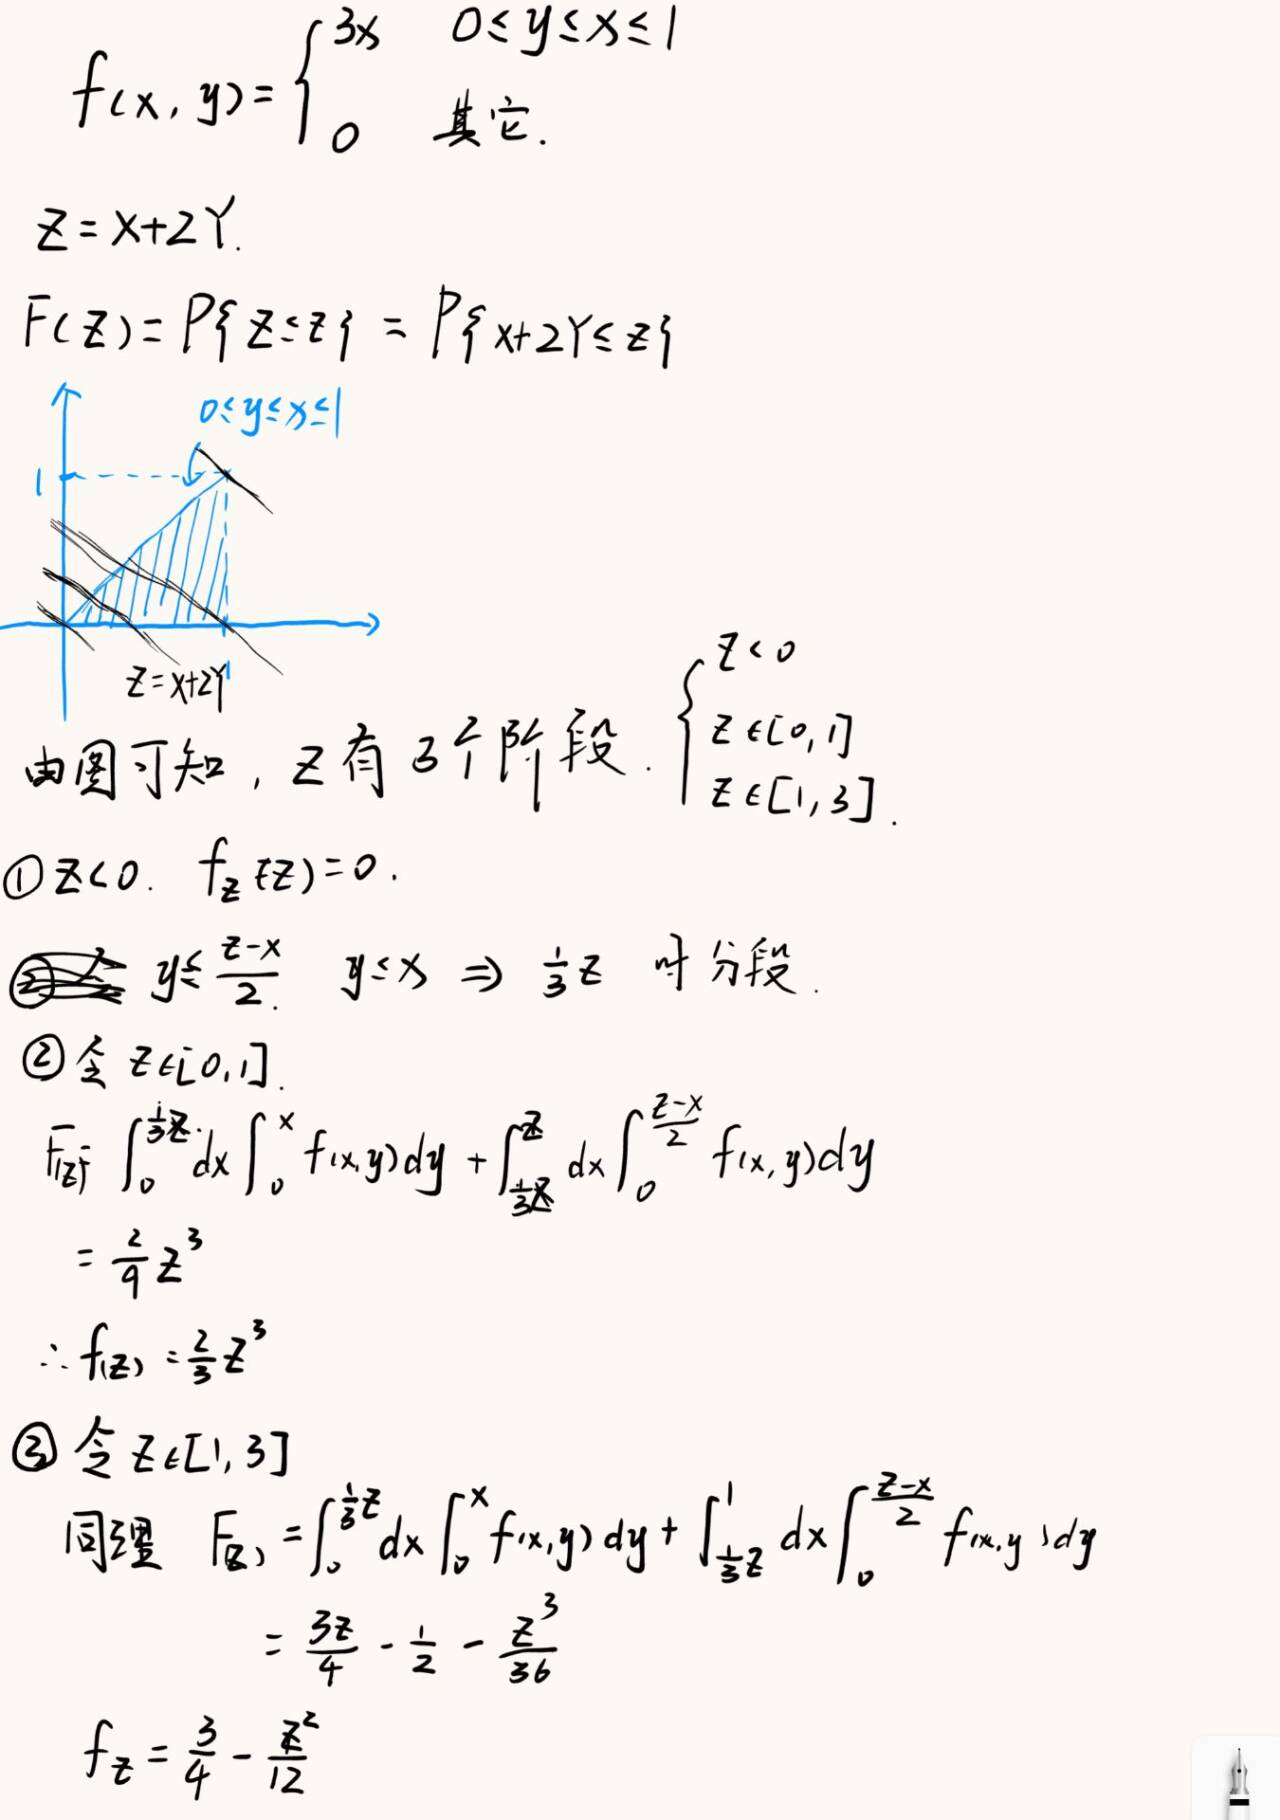 f(x, y) = { 3x 0≤y≤x≤1
0 其它.
Z = X+2Y.
F(Z) = P{Z≤z} = P{X+2Y≤z}
0≤y≤x≤1
1
1
Z=X+2Y
由图可知, Z有3个阶段. { Z<0
Z∈[0,1]
Z∈[1,3].
① Z<0. f_Z(Z)=0.
y≤(z-x)/2. y≤x ⇒ 1/3 z 时分段.
② 令 Z∈[0,1].
F(z)= ∫_0^{1/3 z} dx ∫_0^x f(x,y)dy + ∫_{1/3 z}^z dx ∫_0^{(z-x)/2} f(x,y)dy
= 2/9 z^3
∴ f(z) = 2/3 z^3
③ 令 Z∈[1,3]
同理 F(z) = ∫_0^{1/3 z} dx ∫_0^x f(x,y)dy + ∫_{1/3 z}^1 dx ∫_0^{(z-x)/2} f(x,y)dy
= 3z/4 - 1/2 - z^3/36
f_Z = 3/4 - z^2/12